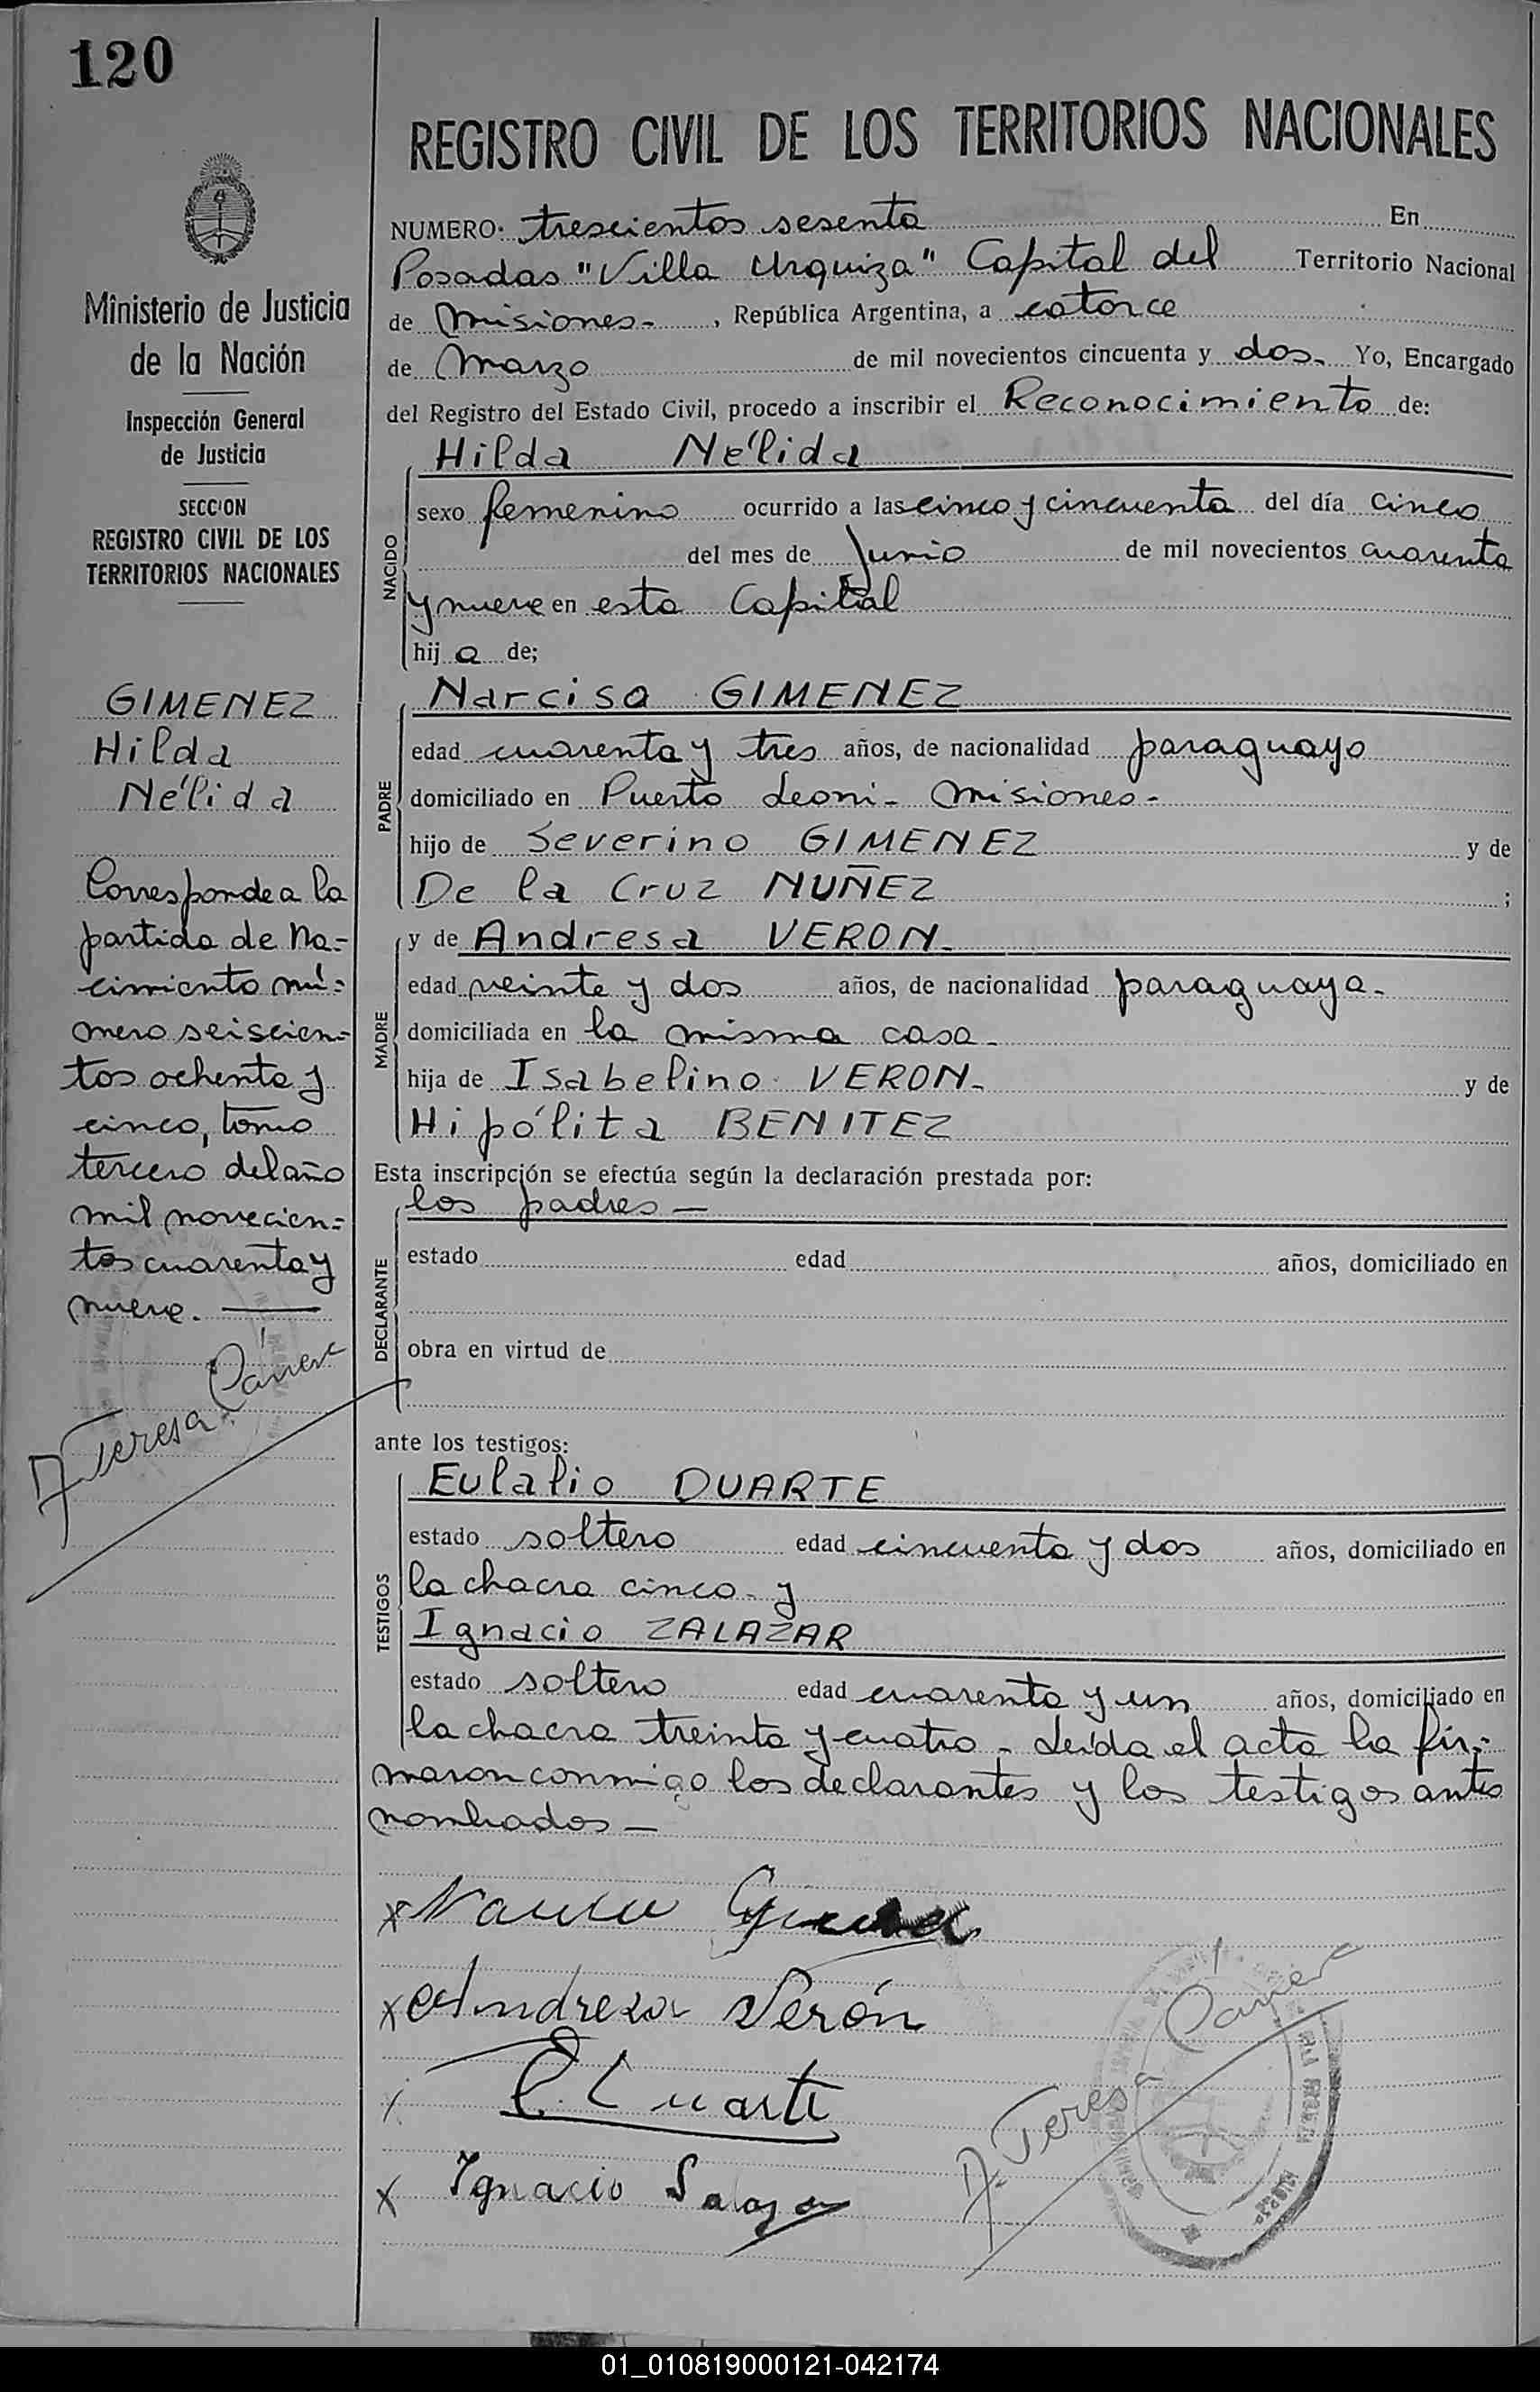 120
Ministerio de Justicia
de la Nación
Inspección General
de Justicia
SECCION
REGISTRO CIVIL DE LOS
TERRITORIOS NACIONALES
GIMENEZ
Hilda
Nélida
Corresponde a la
partida de Na-
cimiento nú-
mero seiscien-
tos ochenta y
cinco, tomo
tercero del año
mil novecien-
tos cuarenta y
nueve.
A. Teresa
REGISTRO CIVIL DE LOS TERRITORIOS NACIONALES
NUMERO: trescientos sesenta En
Posadas "Villa Urquiza" Capital del Territorio Nacional
de Misiones-, República Argentina, a catorce
de Marzo de mil novecientos cincuenta y dos- Yo, Encargado
del Registro del Estado Civil, procedo a inscribir el Reconocimiento de:
Hilda Nélida
NACIDO
sexo femenino ocurrido a las cinco y cincuenta del día cinco
del mes de Junio de mil novecientos cuarenta
y nueve en esta Capital
hij a de;
Narciso GIMENEZ
PADRE
edad cuarenta y tres años, de nacionalidad paraguayo
domiciliado en Puerto Leoni- Misiones-
hijo de Severino GIMENEZ y de
De la Cruz NUÑEZ ;
y de Andresa VERON-
MADRE
edad veinte y dos años, de nacionalidad paraguaya-
domiciliada en la misma casa-
hija de Isabelino VERON- y de
Hipólita BENITEZ
Esta inscripción se efectúa según la declaración prestada por:
los padres —
DECLARANTE
estado edad años, domiciliado en
obra en virtud de
ante los testigos:
Eulalio DUARTE
TESTIGOS
estado soltero edad cincuenta y dos años, domiciliado en
la chacra cinco- y
Ignacio ZALAZAR
estado soltero edad cuarenta y un años, domiciliado en
la chacra treinta y cuatro - Leída el acta la fir-
maron conmigo los declarantes y los testigos antes
nombrados —
x Gimenez
x Andresa Verón
E. Duarte
x Ignacio Salazar
A. Teresa
01_010819000121-042174